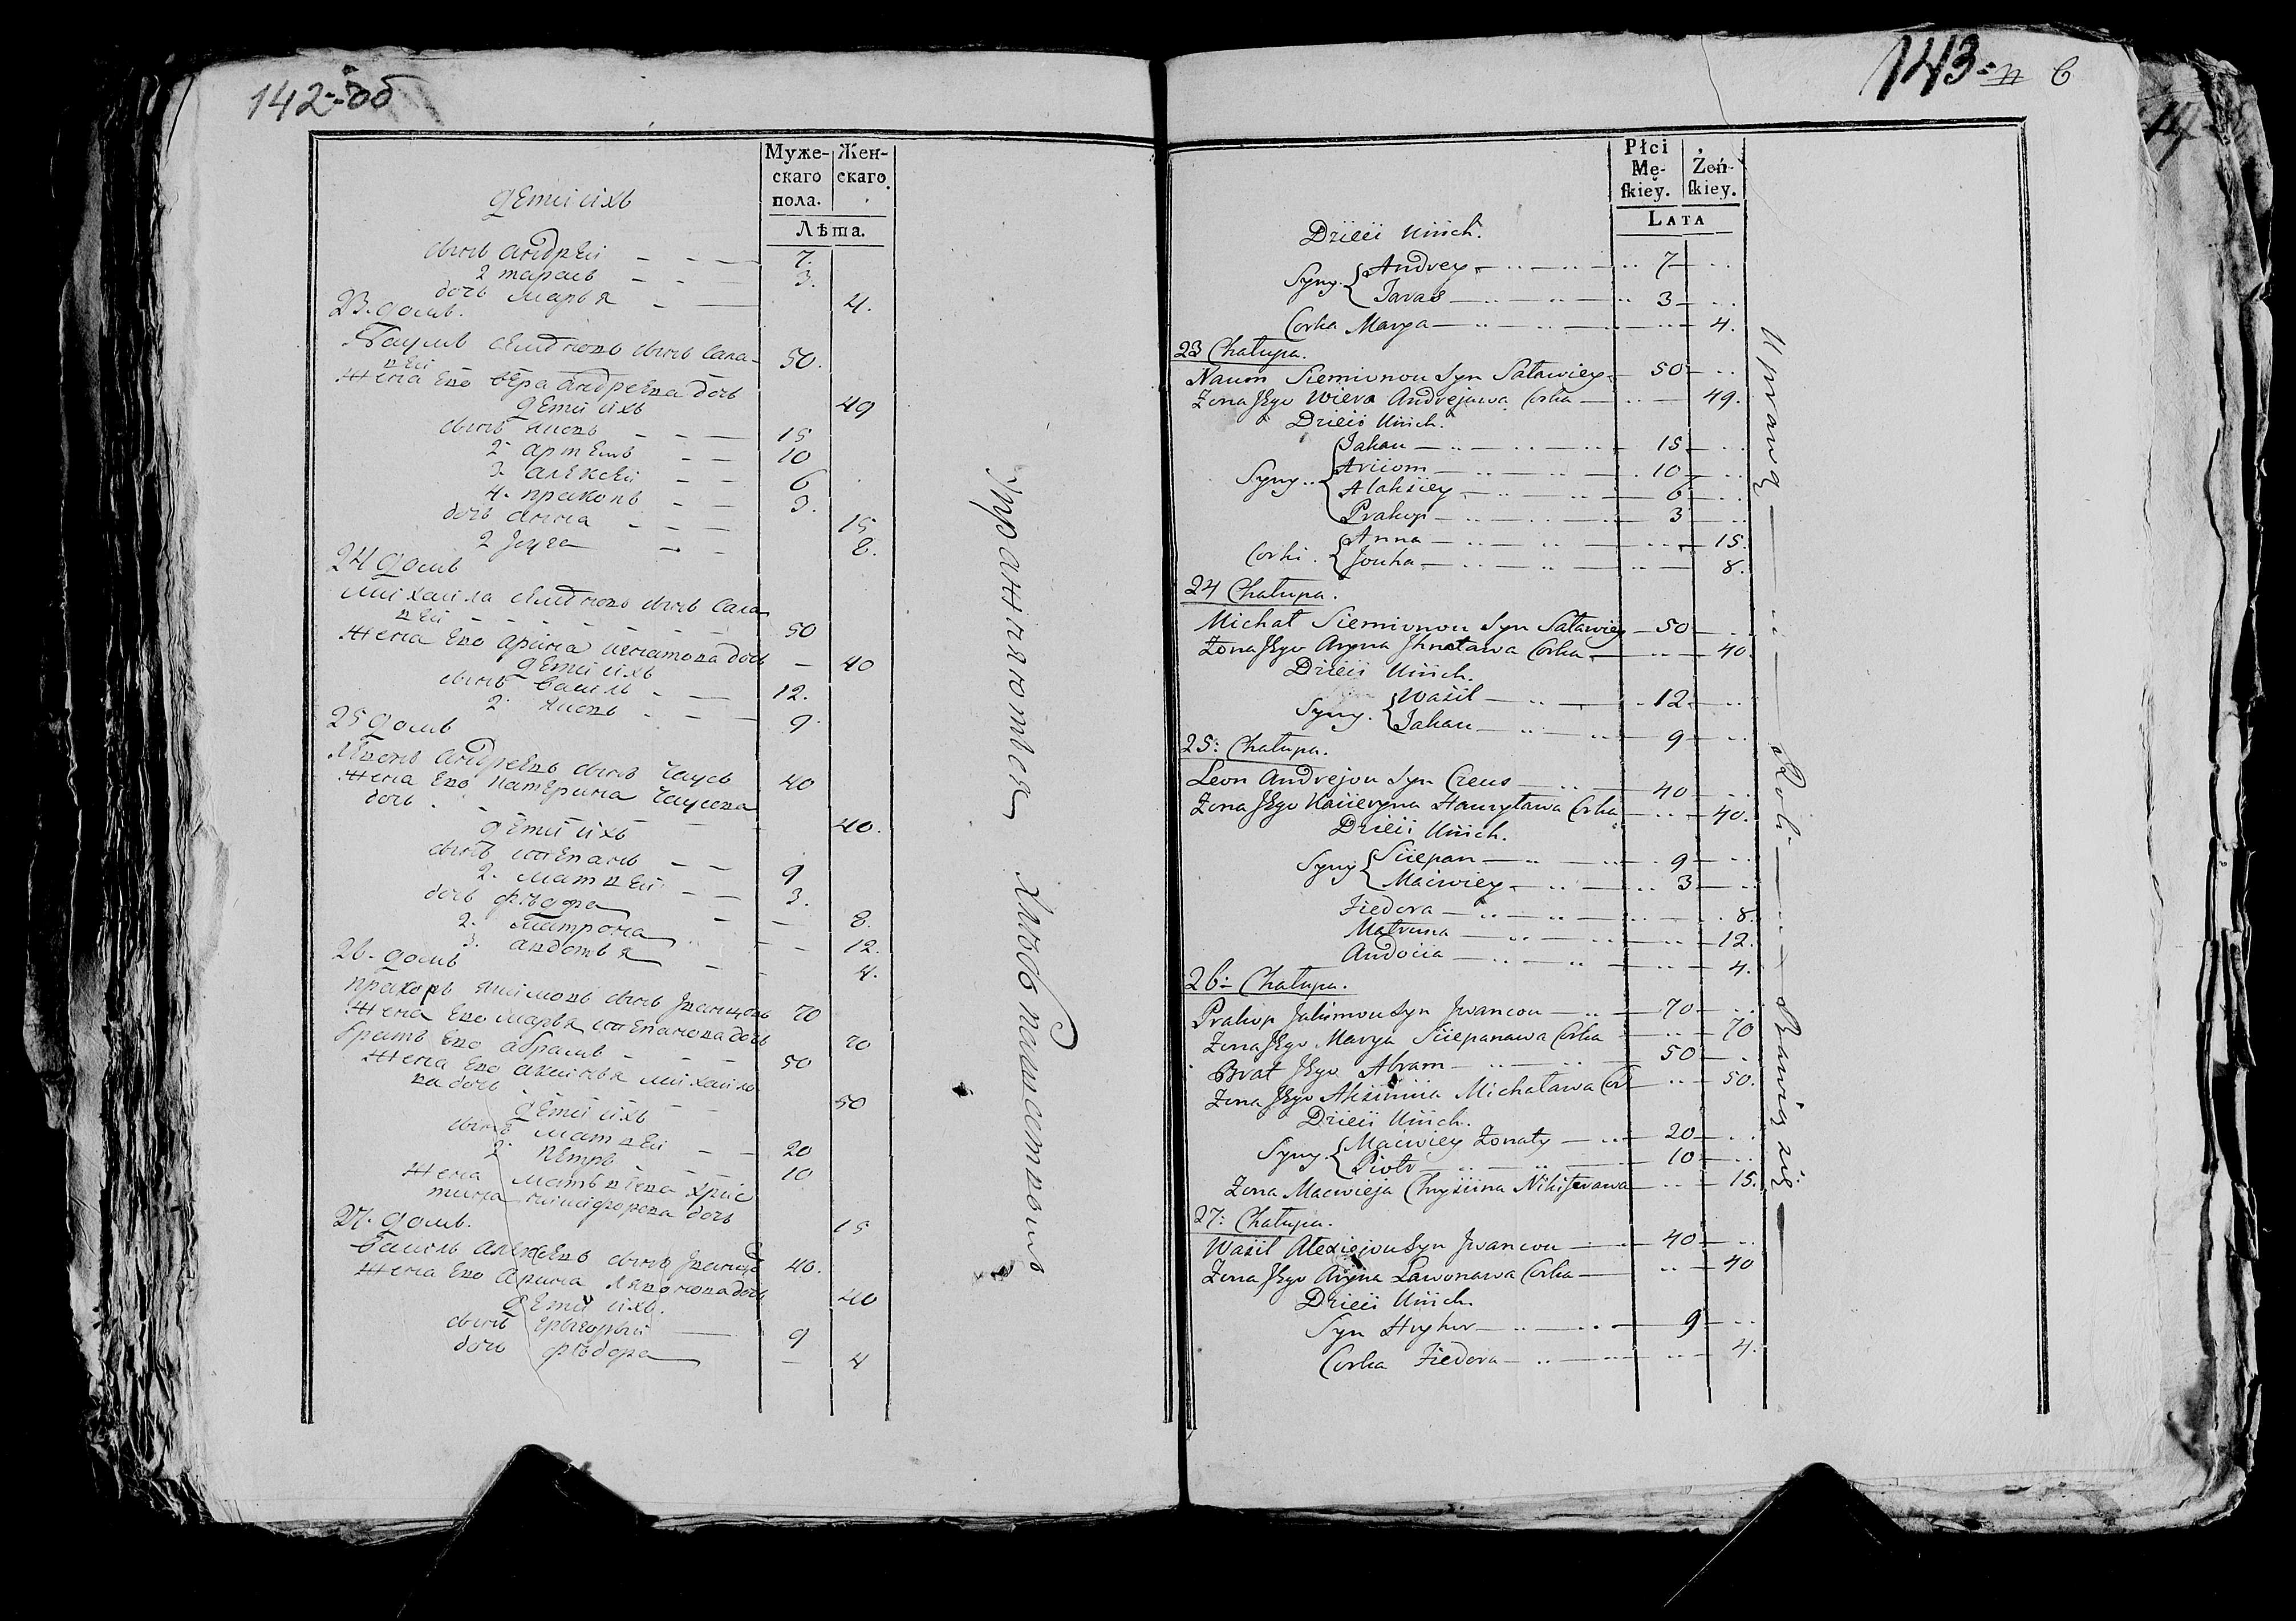 142 об
Муже-
скаго
пола.
Жен-
скаго.
Лѣта.
дети ихъ
сынъ андрей - - - 7.
2 тарасъ - - - 3.
дочь марья - - 4.
23. домъ.
Наумъ семіоновъ сынъ сала-
вей 50.
жена его вера андреева дочь 49
дети ихъ
сынъ яковъ - - - 15
2 артемъ - - 10
3. алексей - - 6
4. пракопъ - - 3.
дочь анна - - - 15
2 - - 8.
24 домъ
михайла семіоновъ сынъ сала
вей - - - - 50
жена его арина игнатова дочь - 40
дети ихъ
сынъ василь - - 12.
2. яковъ - - - 9.
25 домъ
леонъ андреевъ сынъ чаусъ 40
жена его катерина
дочь - - - 40.
дети ихъ
сынъ степанъ - - 9
2. матвей - - 3.
дочь федора - - 8.
2. матрона - - 12.
3. авдотья - - 4.
26. домъ
якимовъ сынъ 70
жена его марья степанова дочь 70
братъ его абрамъ - - - 50
жена его михайло
ва дочь - - - 50
дети ихъ
сынъ матвей - - 20
2. петръ - - - 10
жена матвеева хрис
тина никифорова дочь 15
27. домъ.
василь алексеевъ сынъ 40.
жена его арина дочь 40
дети ихъ.
сынъ григорий — 9
дочь федора — - 4
Управляютъся хлебопашествомъ
143 6
Płci
Mę-
skiey.
Żeń-
skiey.
LATA
Dzieci Uiich.
Syny. Andrey 7
Taras 3
Corka Marya 4.
23 Chałupa.
Naum Siemionou Syn Saławiey 50
Żona Jego Wiera Andrejawa Corka 49.
Dzieci Uiich.
Syny Jakau 15
Arciom 10
Alaksiey 6
Prakop 3
Corki. Anna 15.
Jouha 8.
24 Chałupa.
Michał Siemionou Syn Saławiey 50
Żona Jego Aryna Ihnatawa Corka 40.
Dzieci Uiich.
Syny. Wasil 12
Jakau 9
25: Chałupa.
Leon Andrejou Syn 40
Żona Jego Kacieryna Haurylawa Corka 40.
Dzieci Uiich.
Syny Sciepan 9
Maciwiey 3
Fiedora 8.
Matruna 12.
Audocia 4.
26 Chałupa.
Prakop Jakimou Syn Jwancou 70
Żona Jego Marya Sciepanawa Corka 70
Brat Jego Abram 50
Żona Jego Aksinnia Michaława Cor 50.
Dzieci Uiich.
Syny. Maciwiey Żonaty 20
Piotr 10
Żona Macwieja Chryscina Nikifarawa 15.
27: Chałupa.
Wasil Alexiejou Syn Jwancou 40
Żona Jego Aryna Lawonawa Corka 40
Dzieci Uiich.
Syn Hryhor 9
Corka Fiedora 4.
Uprawą Roli Bawią się